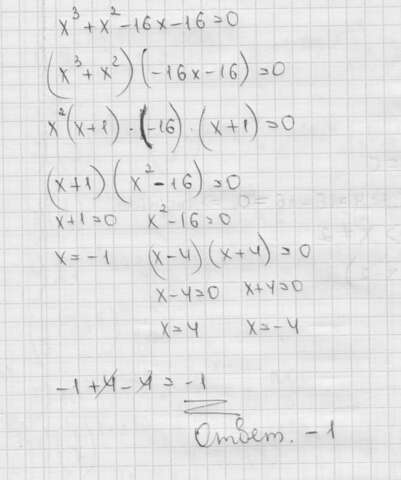 x³ + x² - 16x - 16 = 0
(x³ + x²) (-16x - 16) = 0
x² (x + 1) · (-16) · (x + 1) = 0
(x + 1) (x² - 16) = 0
x + 1 = 0 x² - 16 = 0
x = -1 (x - 4) (x + 4) = 0
x - 4 = 0 x + 4 = 0
x = 4 x = -4
-1 + 4 - 4 = -1
Ответ. -1